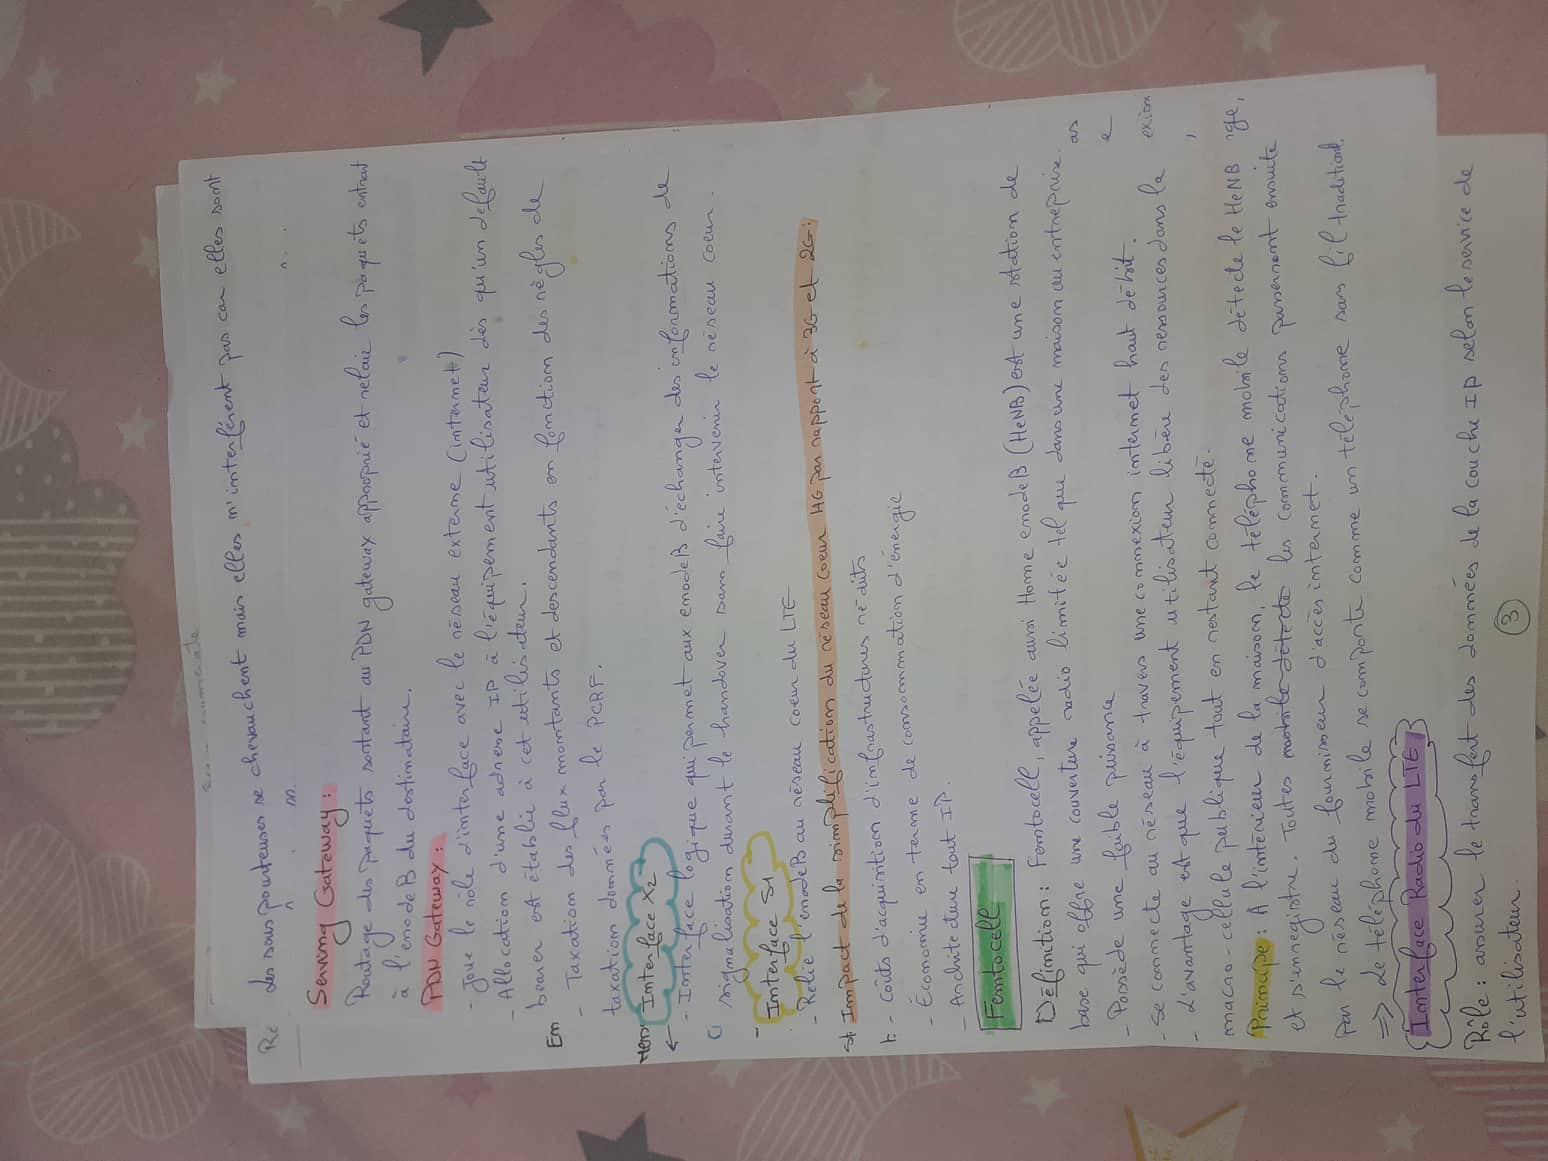 Les sous porteuses se chevauchent mais elles n'interfèrent pas car elles sont
Serving Gateway :
Routage des paquets sortant au PDN gateway approprié et relaie les paquets entrant
à l'enodeB du destinataire.
PDN Gateway :
- Joue le rôle d'interface avec le réseau externe (internet)
- Allocation d'une adresse IP à l'équipement utilisateur dès qu'un default
bearer est établie à cet utilisateur.
- Taxation des flux montants et descendants en fonction des règles de
taxation données par le PCRF.
Interface X2
- Interface logique qui permet aux enodeB d'échanger des informations de
signalisation durant le handover sans faire intervenir le réseau coeur.
Interface S1
- Relie l'enodeB au réseau coeur du LTE
Impact de la simplification du réseau coeur 4G par rapport à 3G et 2G :
- Coûts d'acquisition d'infrastructures réduits
- Économie en terme de consommation d'énergie
- Architecture tout IP.
Femtocell
Définition : Femtocell, appelée aussi Home enodeB (HeNB) est une station de
base qui offre une couverture radio limitée tel que dans une maison ou entreprise.
- Possède une faible puissance
- Se connecte au réseau à travers une connexion internet haut débit.
- L'avantage est que l'équipement utilisateur libère des ressources dans la
macro-cellule publique tout en restant connecté.
Principe : A l'intérieur de la maison, le téléphone mobile détecte le HeNB
et s'enregistre. Toutes mobile détecte les communications passeront ensuite
par le réseau du fournisseur d'accès internet.
=> Le téléphone mobile se comporte comme un téléphone sans fil traditionl.
Interface Radio du LTE
Rôle : assurer le transfert des données de la couche IP selon le service de
l'utilisateur.
3